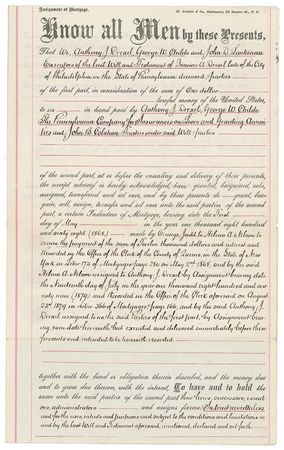 Assignment of Mortgage.
Know all Men by these Presents,
That We, Anthony J Drexel, George W Childs and John D Lankenau
Executors of the last Will and Testament of Francis A Drexel late of the City
of Philadelphia in the State of Pennsylvania deceased, parties
of the first part, in consideration of the sum of One dollar
lawful money of the United States,
to us in hand paid by Anthony J. Drexel, George W Childs
The Pennsylvania Company for Insurances on Lives and Granting Annui
ties and John B. Colahan Trustees under said Will parties
of the second part, at or before the ensealing and delivery of these presents,
the receipt whereof is hereby acknowledged, have granted, bargained, sold,
assigned, transferred and set over, and by these presents do grant, bar-
gain, sell, assign, transfer and set over unto the said parties of the second
part, a certain Indenture of Mortgage, bearing date the First
day of May in the year one thousand eight hundred
and sixty eight (1868) made by to Helena A Nelson to
secure the payment of the sum of thousand dollars and interest and
Recorded in the Office of the Clerk of the County of Queens, in the State of New
York in Liber of Mortgages page on May 1868 and by the said
Helena A Nelson assigned to Anthony J. Drexel by Assignment bearing date
the Nineteenth day of July in the year one thousand eight hundred and
nine (1879) and Recorded in the Office of the Clerk aforesaid on August
1879 in Liber of Mortgages page 166, and by the said Anthony J
Drexel assigned to us the said Parties of the first part, by Assignment bear-
ing even date herewith but executed and delivered immediately before these
presents and intended to be herewith recorded
together with the bond or obligation therein described, and the money due
and to grow due thereon, with the interest. To have and to hold the
same unto the said parties of the second part their successors,
administrators and assigns forever, In trust nevertheless
and for the uses, intents and purposes and subject to the conditions and limitations in
and by the last Will and Testament aforesaid, mentioned, declared and set forth.